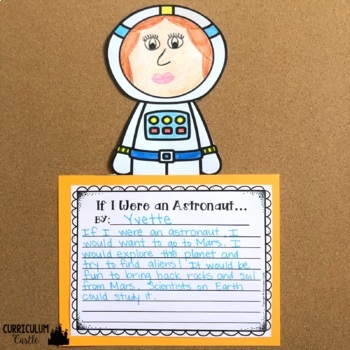 If I Were an Astronaut...
BY: Yvette
If I were an astronaut, I
would want to go to Mars. I
would explore the planet and
try to find aliens! It would be
fun to bring back rocks and soil
from Mars. Scientists on Earth
could study it.
CURRICULUM
Castle